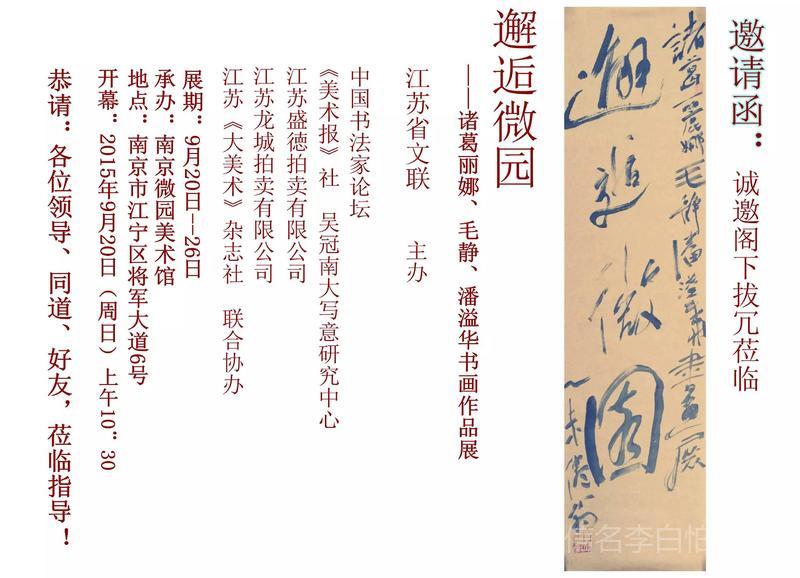 邀请函：诚邀阁下拔冗莅临
諸葛麗娜毛靜潘溢华書画展
邂逅微園
邂逅微园
——诸葛丽娜、毛静、潘溢华书画作品展
江苏省文联 主办
中国书法家论坛
《美术报》社 吴冠南大写意研究中心
江苏盛德拍卖有限公司
江苏龙城拍卖有限公司
江苏《大美术》杂志社 联合协办
展期：9月20日--26日
承办：南京微园美术馆
地点：南京市江宁区将军大道6号
开幕：2015年9月20日（周日）上午10"30
恭请：各位领导、同道、好友，莅临指导！
信名李白怕